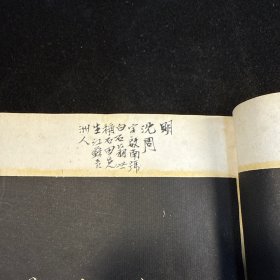 明
沈周
字啟南號
白石翁世
稱石田先
生江蘇長
洲人